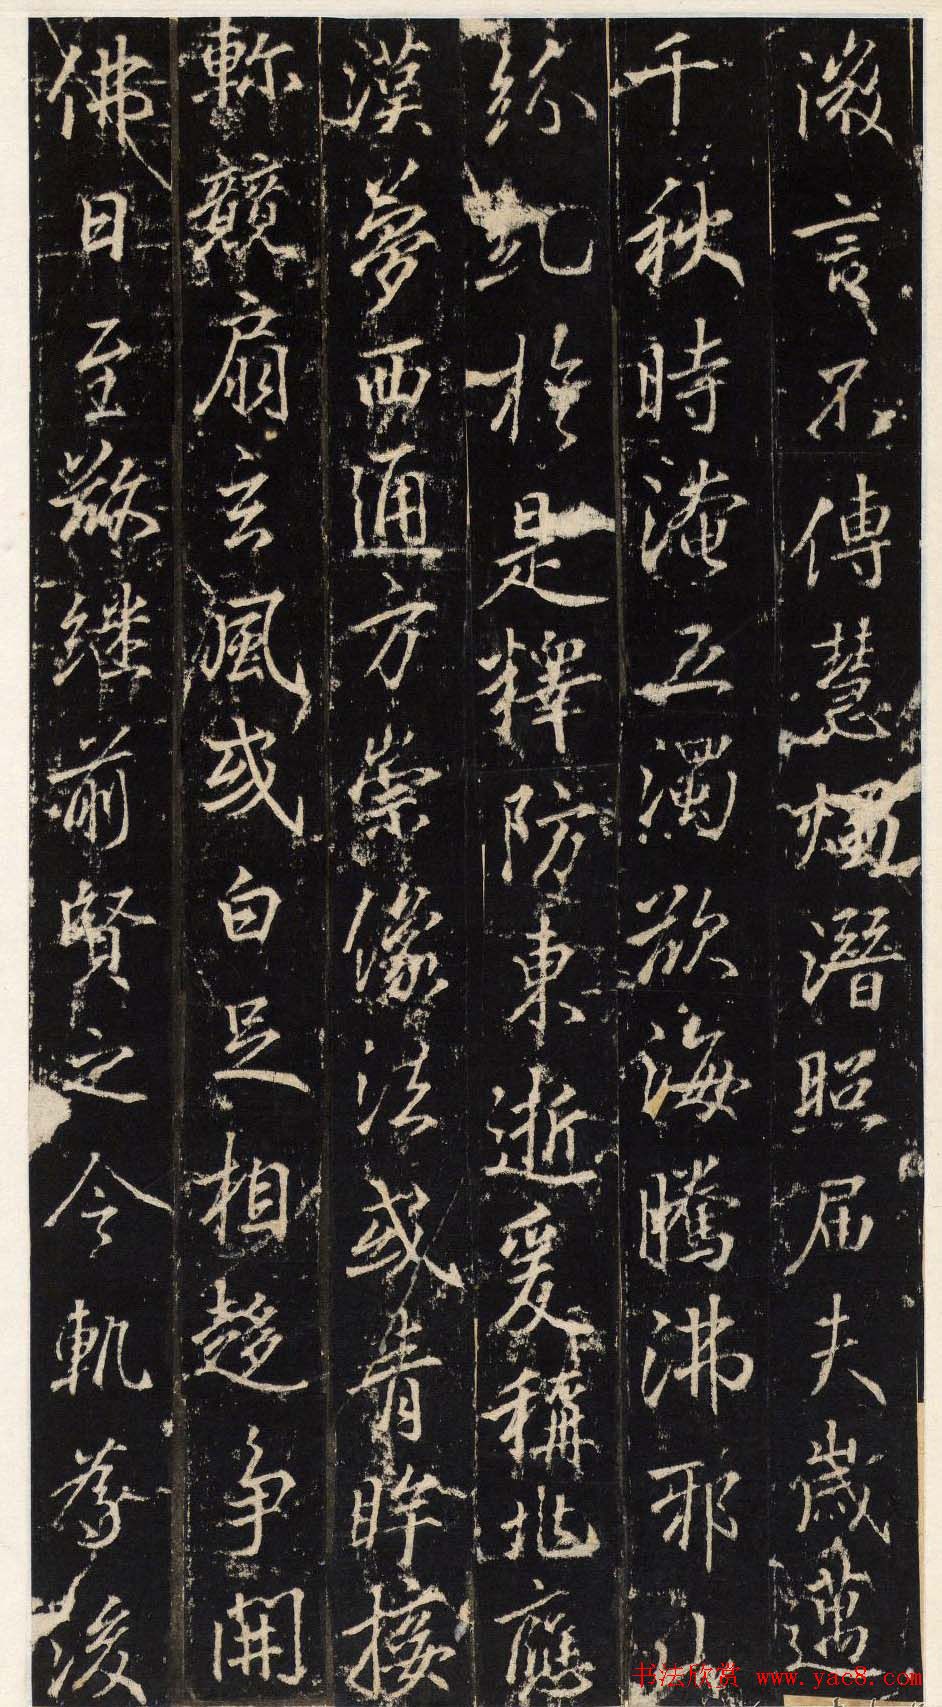 微言不傳慧潛照屆夫歲邁
千秋時淹五濁欲海騰沸邪山
紛於是釋防東逝爰稱應
漢夢西通方崇像法或青眸接
軫競扇玄風或白足相趍爭開
佛日至繼前賢之令軌後
书法欣赏 www.yac8.com